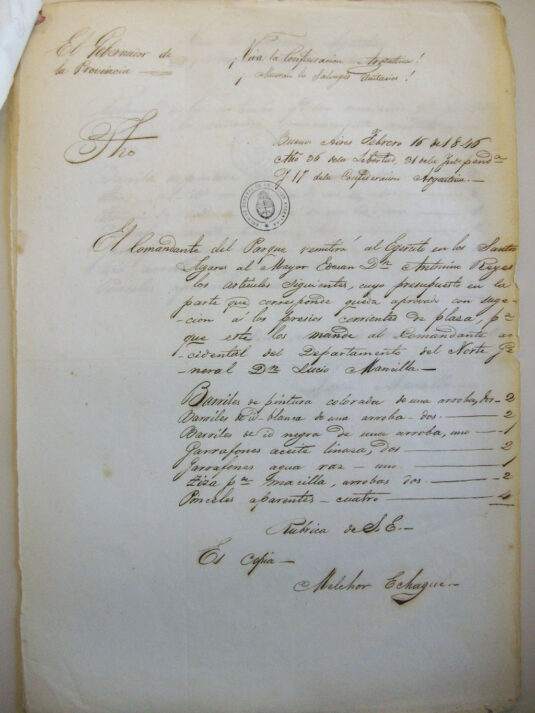 El Gobernador de
la Provincia
¡Viva la Confederacion Argentina!
¡Mueran los Salvages Unitarios!
Buenos Aires Febrero 16 de 1846
Año 36 de la Libertad, 31 de la Independa
y 17 de la Confederacion Argentina.
El Comandante del Parque remitirá al Egercito en los Santos
lugares al Mayor Edecan Dn Antonino Reyes
los articulos siguientes, cuyo presupuesto en la
parte que corresponde queda aprovado con suge-
-cion á los presios corrientes de plaza pa
que este los mande al Comandante ac-
-cidental del Departamento del Norte Ge-
-neral Dn Lucio Mancilla.
Barriles de pintura colorada de una arroba, dos - 2
Barriles de id blanca de una arroba - dos - 2
Barriles de id negra de una arroba, uno - 1
Garrafones aceite linaza, dos - 2
Garrafones agua raz - uno - 1
Tiza pa macilla, arrobas dos - 2
Pinceles aparentes - cuatro - 4
Rubrica de S.E.-
Es Copia-
Melchor Echague-